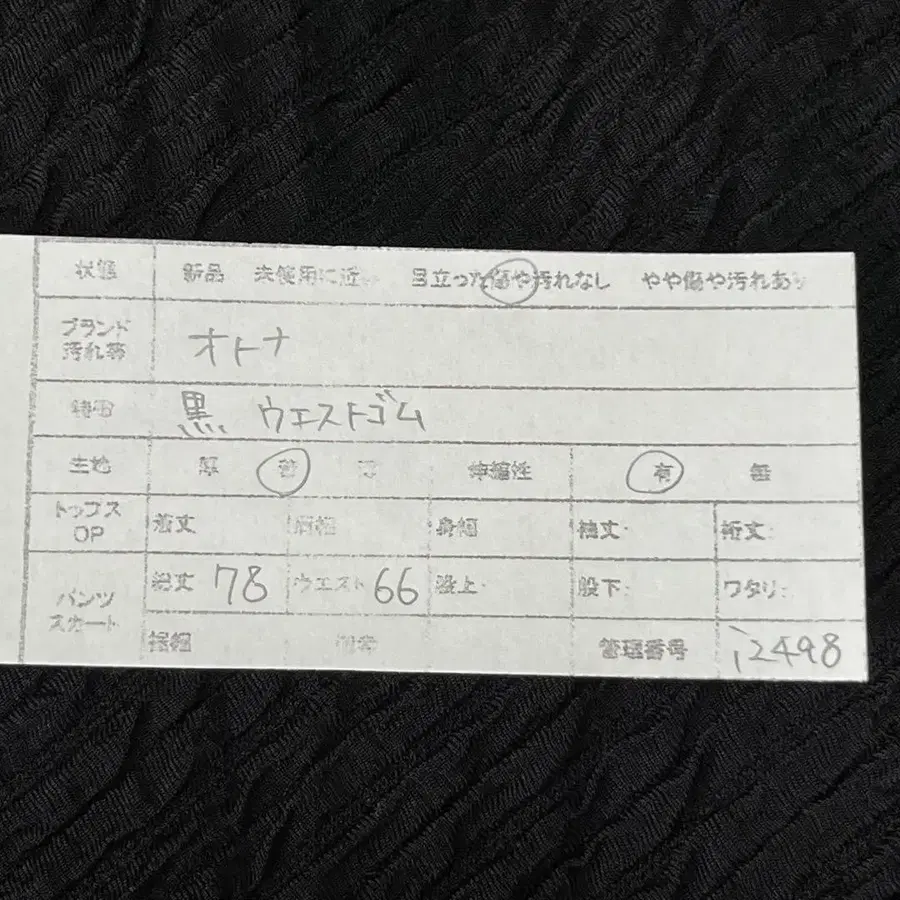 状態 新品 未使用に近い 目立った傷や汚れなし やや傷や汚れあり
ブランド オトナ
汚れ等
特徴 黒 ウエストゴム
生地 厚 普 薄 伸縮性 有 無
トップス
OP 着丈 肩幅 身幅 袖丈: 裄丈:
パンツ
スカート 総丈 78 ウエスト 66 股上: 股下: ワタリ:
裾幅 備考 管理番号 i2498